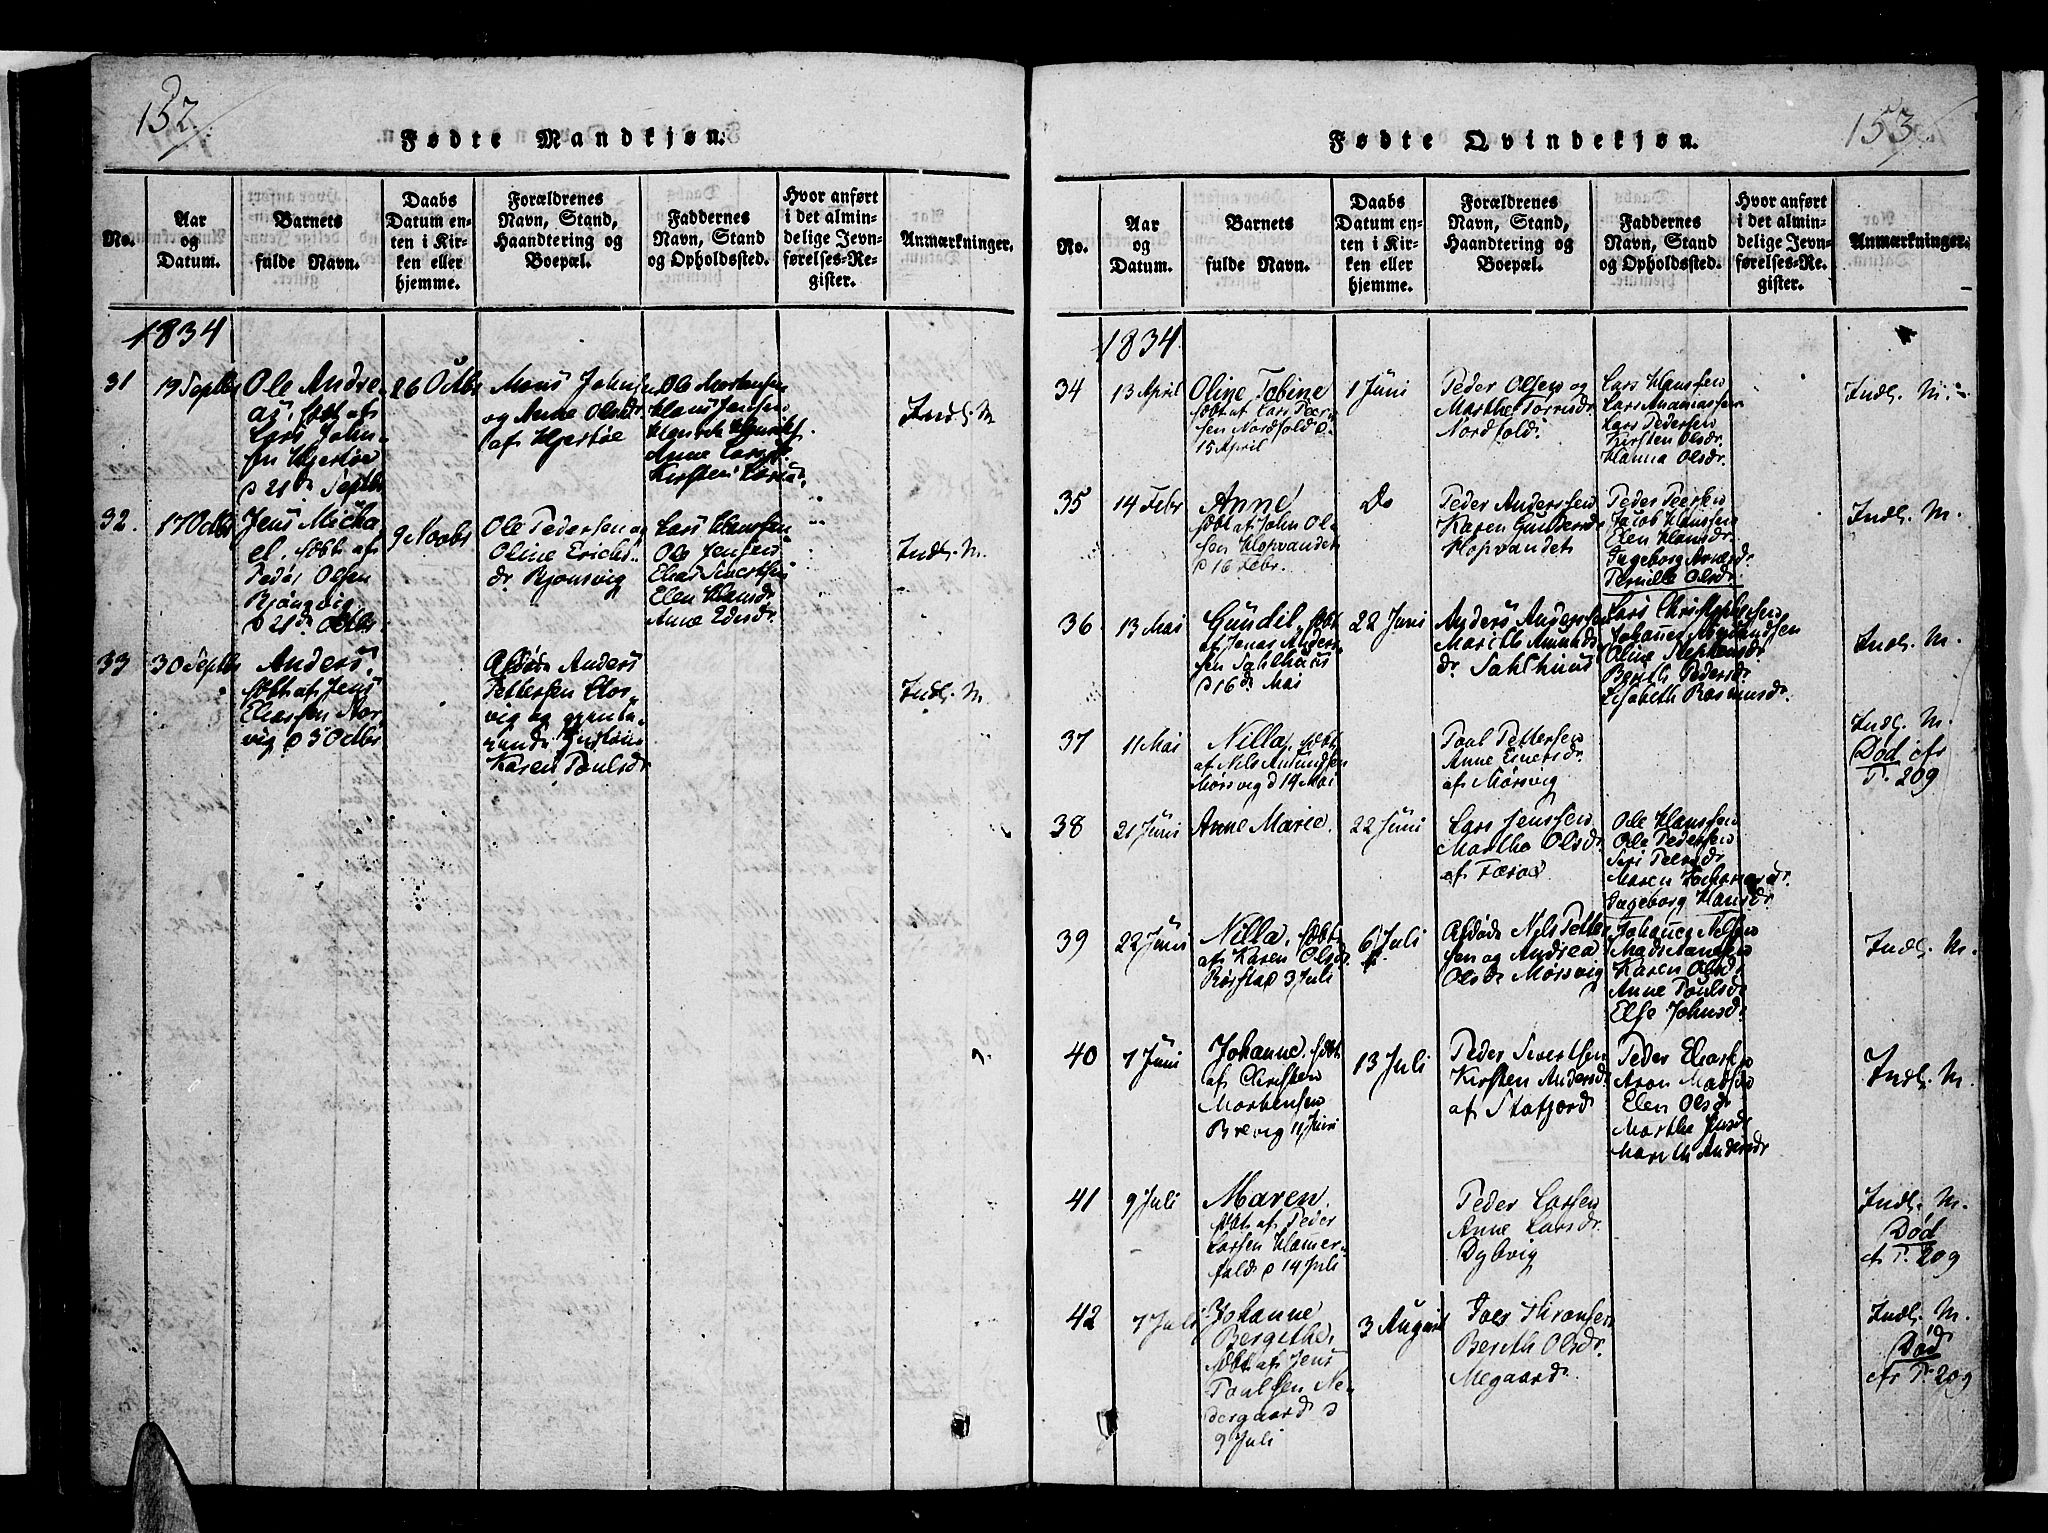 152.
Fødte Mandkjøn.
No.
Aar
og
Datum.
Barnets
fulde Navn.
Daabs
Datum en-
ten i Kir-
ken eller
hjemme.
Forældrenes
Navn, Stand,
Haandtering og
Boepæl.
Faddernes
Navn, Stand
og Opholdssted.
Hvor anført
i det almin-
delige Jevn-
førelses-Re-
gister.
Anmærkninger.
1834
31
19 Septbr
Ole Andre-
as, døbt af
Lars John-
sen Hjertøe
d 21de Septbr
26 Octbr
Mons Johnsen
og Anne Olsdr
af Hjertøe
Ole Mortensen
Hans Jensen
Anne Larsdr
Kirsten
Indl. M
32.
17 Octbr
Jens Micha-
el. døbt af
Peder Olsen
Bjonsvig
d 21de Octbr
9 Novbr
Ole Pedersen og
Oline Erichs-
dr. Bjonsvig
Lars Hansen
Ole Jensen
Elias Sivertsen
Elen Hansdr
Anne
Indl. M.
33
30 Septbr
Anders,
døbt af Jens
Eliassen Nor-
vig d 5 Octbr
Afdøde Anders
Pettersen
vig og
Karen Poulsdr
Indl. M
153.
Fødte Qvindekjøn.
No.
Aar
og
Datum.
Barnets
fulde Navn.
Daabs
Datum en-
ten i Kir-
ken eller
hjemme.
Forældrenes
Navn, Stand,
Haandtering og
Boepæl.
Faddernes
Navn, Stand
og Opholdssted.
Hvor anført
i det almin-
delige Jevn-
førelses-Re-
gister.
Anmærkninger.
1834.
34
13 April
Oline Tobine
døbt af Lars Peer-
sen Nordfold d.
15 April
1 Juni
Peder Olsen og
Marthe Torrisdr
Nordfold.
Lars Hanssen
Lars Ananiassen
Lars Pedersen
Kirsten Olsdr.
Hanna Olsdr.
Indl. M.
35
14 Febr
Anne
døbt af John Ol-
sen Hopvandet
d 16 Febr.
Do
Peder Anderssen
Karen Gundersdr
Hopvandet
Peder Peersen
Jacob Hanssen
Elen Hansdr.
Ingeborg
Pernille Olsdr.
Indl. M.
36
13 Mai
Gundil, døbt
af Jonas Anders-
sen Sahlhuus
d 16de Mai
22 Juni
Anders Anderssen
Marith Amunds-
dr. Sahlhuus
Lars Christophersen
Johannes Amundsen
Oline Stephensdr.
Berith Pedersdr.
Elisabeth Rasmusdr.
Indl. M.
37
11 Mai
Nilla, døbt
af Nils Amundsen
Mørsvig d 14 Mai
Poul Pettersen
Anne
af Mørsvig
Indl. M.
Død cfr
P. 209
38
21 Juni
Anne Marie.
22 Juni
Lars Jenssen
Marthe Olsdr.
af Færøe
Ole Hanssen
Ole Pedersen
Siri
Maren
Ingeborg Hansdr.
39
22 Juni
Nilla, døbt
af Karen Olsdr.
Rørstad 3 Juli
6 Juli
Afdøde Nils Petter-
sen og Andrea
Olsdr Mørsvig
Johannes Nilsen
Mads
Karen Olsdr
Anne Poulsdr
Else Johnsdr.
Indl. M.
40
7 Juni
Johanne. døbt
af Christen
Mortensen
Brevig 11 Juni
13 Juli
Peder Sivertsen
Kirsten Andersdr
af Stofjord
Peder Eliassen
Aron Madsen
Elen Olsdr
Marthe Jensdr
Marith Andersdr
Indl. M.
41
9 Juli
Maren.
døbt af Peder
Larsen Hamer-
fald d 14 Juli
Peder Larsen
Anne Larsdr.
Dybvig
Indl. M.
Død
cf P. 209
42
7 Juli
Johanne
Bergithe,
døbt af Jens
Poulsen Ne-
dergaard d
9 Juli
3 August
Berith Olsdr.
Megaard.
Indl. M.
Død
cfr P. 209